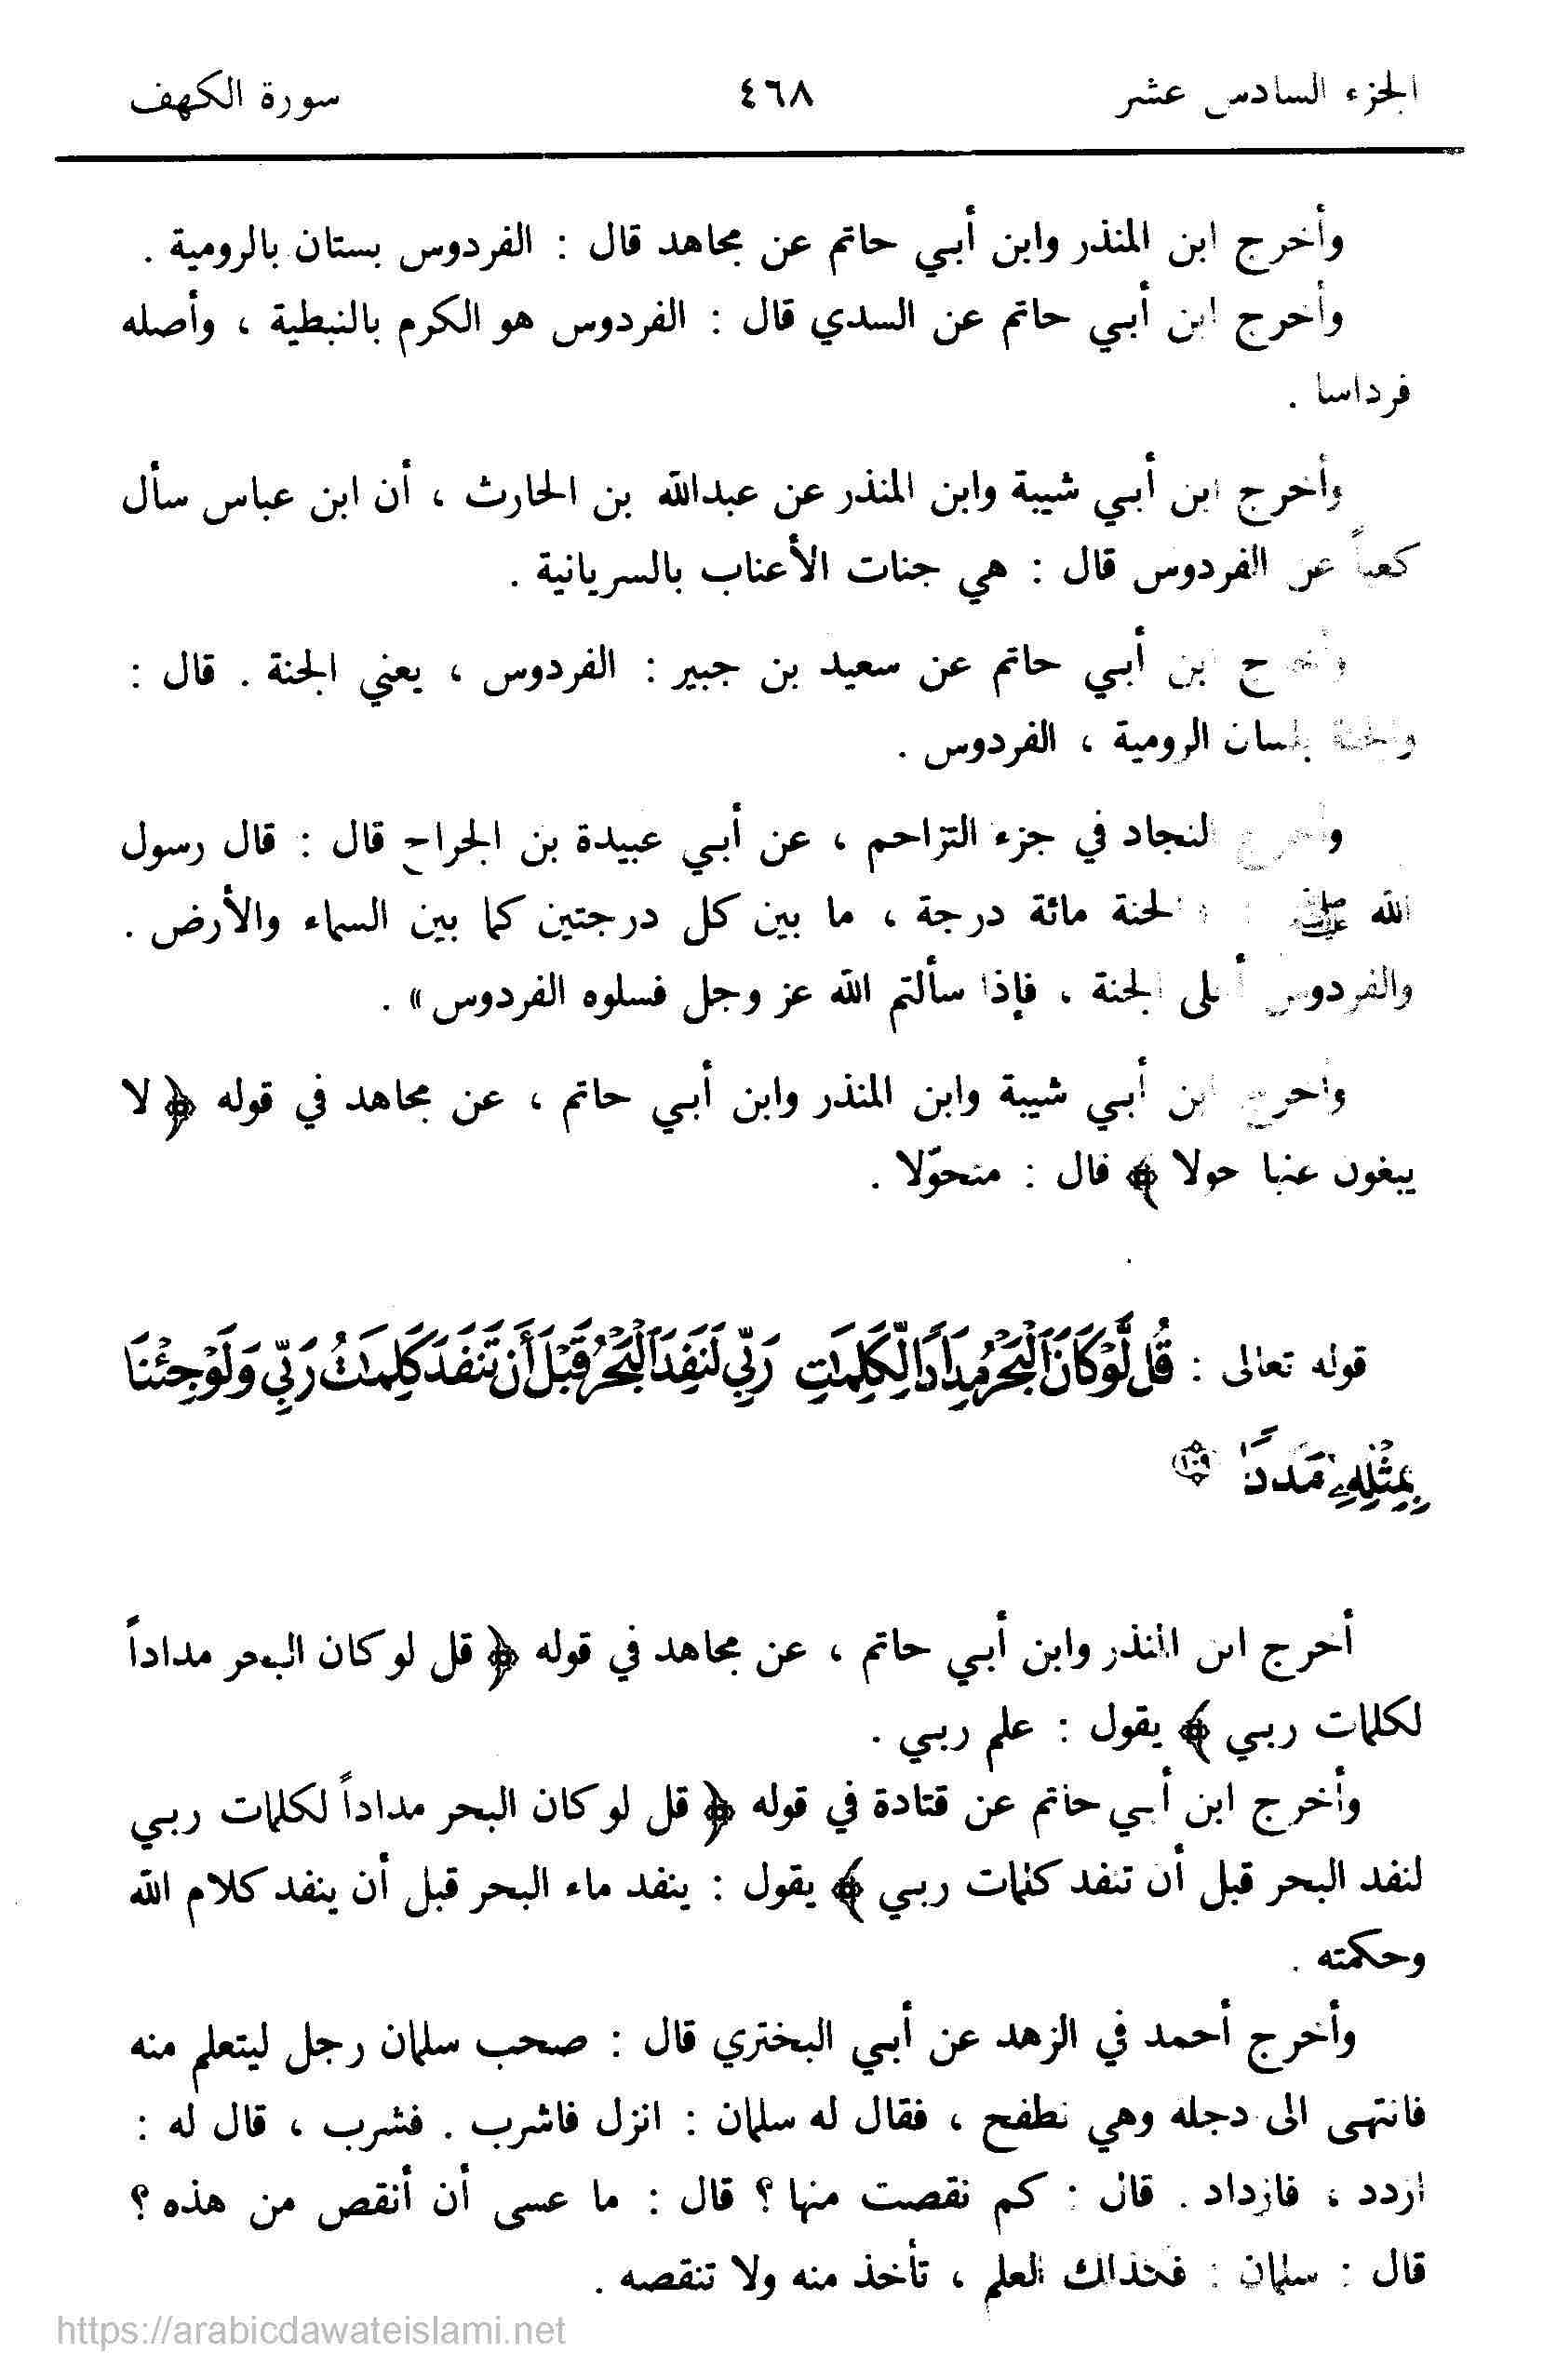 الجزء السادس عشر ٤٦٨ سورة الكهف
وأخرج ابن المنذر وابن أبي حاتم عن مجاهد قال : الفردوس بستان بالرومية .
وأخرج ابن أبي حاتم عن السدي قال : الفردوس هو الكرم بالنبطية ، وأصله
فرداسا .
وأخرج ابن أبي شيبة وابن المنذر عن عبدالله بن الحارث ، أن ابن عباس سأل
كعباً عن الفردوس قال : هي جنات الأعناب بالسريانية .
وأخرج ابن أبي حاتم عن سعيد بن جبير : الفردوس ، يعني الجنة . قال :
والجنة بلسان الرومية ، الفردوس .
وأخرج النجاد في جزء التراحم ، عن أبي عبيدة بن الجراح قال : قال رسول
الله ﷺ : « الجنة مائة درجة ، ما بين كل درجتين كما بين السماء والأرض .
والفردوس أعلى الجنة ، فإذا سألتم الله عز وجل فسلوه الفردوس » .
وأخرج ابن أبي شيبة وابن المنذر وابن أبي حاتم ، عن مجاهد في قوله ﴿ لا
يبغون عنها حولا ﴾ قال : متحوّلا .
قوله تعالى : قُل لَّوْ كَانَ ٱلْبَحْرُ مِدَادًا لِّكَلِمَٰتِ رَبِّي لَنَفِدَ ٱلْبَحْرُ قَبْلَ أَن تَنفَدَ كَلِمَٰتُ رَبِّي وَلَوْ جِئْنَا
بِمِثْلِهِۦ مَدَدًا ١٠٩
أخرج ابن المنذر وابن أبي حاتم ، عن مجاهد في قوله ﴿ قل لو كان البحر مداداً
لكلمات ربي ﴾ يقول : علم ربي .
وأخرج ابن أبي حاتم عن قتادة في قوله ﴿ قل لو كان البحر مداداً لكلمات ربي
لنفد البحر قبل أن تنفد كلمات ربي ﴾ يقول : ينفد ماء البحر قبل أن ينفد كلام الله
وحكمته .
وأخرج أحمد في الزهد عن أبي البختري قال : صحب سلمان رجل ليتعلم منه
فانتهى الى دجله وهي تطفح ، فقال له سلمان : انزل فاشرب . فشرب ، قال له :
ازدد ، فازداد . قال : كم نقصت منها ؟ قال : ما عسى أن أنقص من هذه ؟
قال : سلمان : فكذلك العلم ، تأخذ منه ولا تنقصه .
https://arabicdawateislami.net